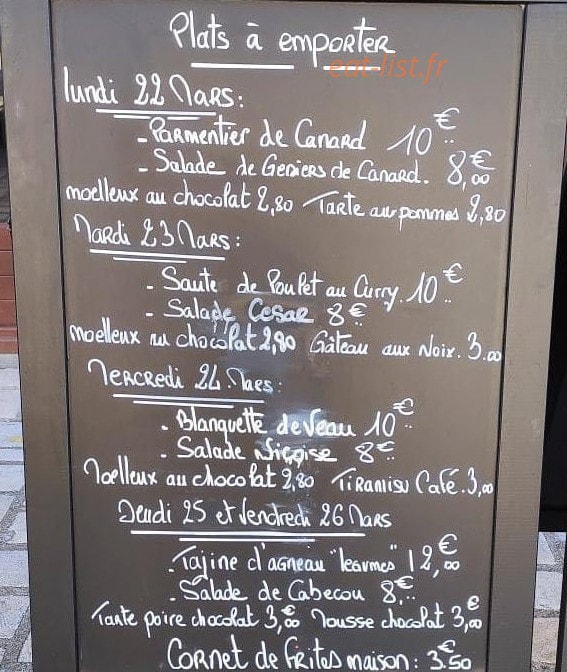 Plats à emporter
eat-list.fr
lundi 22 Mars:
- Parmentier de Canard 10€
- Salade de Gésiers de Canard. 8,€00
moelleux au chocolat 2,80 Tarte aux pommes 2,80
Mardi 23 Mars:
- Sauté de Poulet au Curry. 10€
- Salade Cesar 8€
moelleux au chocolat 2,80 Gâteau aux Noix. 3.00
Mercredi 24 Mars:
- Blanquette de veau 10€
- Salade Niçoise 8€
Moelleux au chocolat 2,80 Tiramisu Café. 3,00
Jeudi 25 et Vendredi 26 Mars
- Tajine d'agneau "legumes" 12,€00
- Salade de Cabecou 8,€
Tarte poire chocolat 3,€00 Mousse chocolat 3,€00
Cornet de Frites maison: 3€50